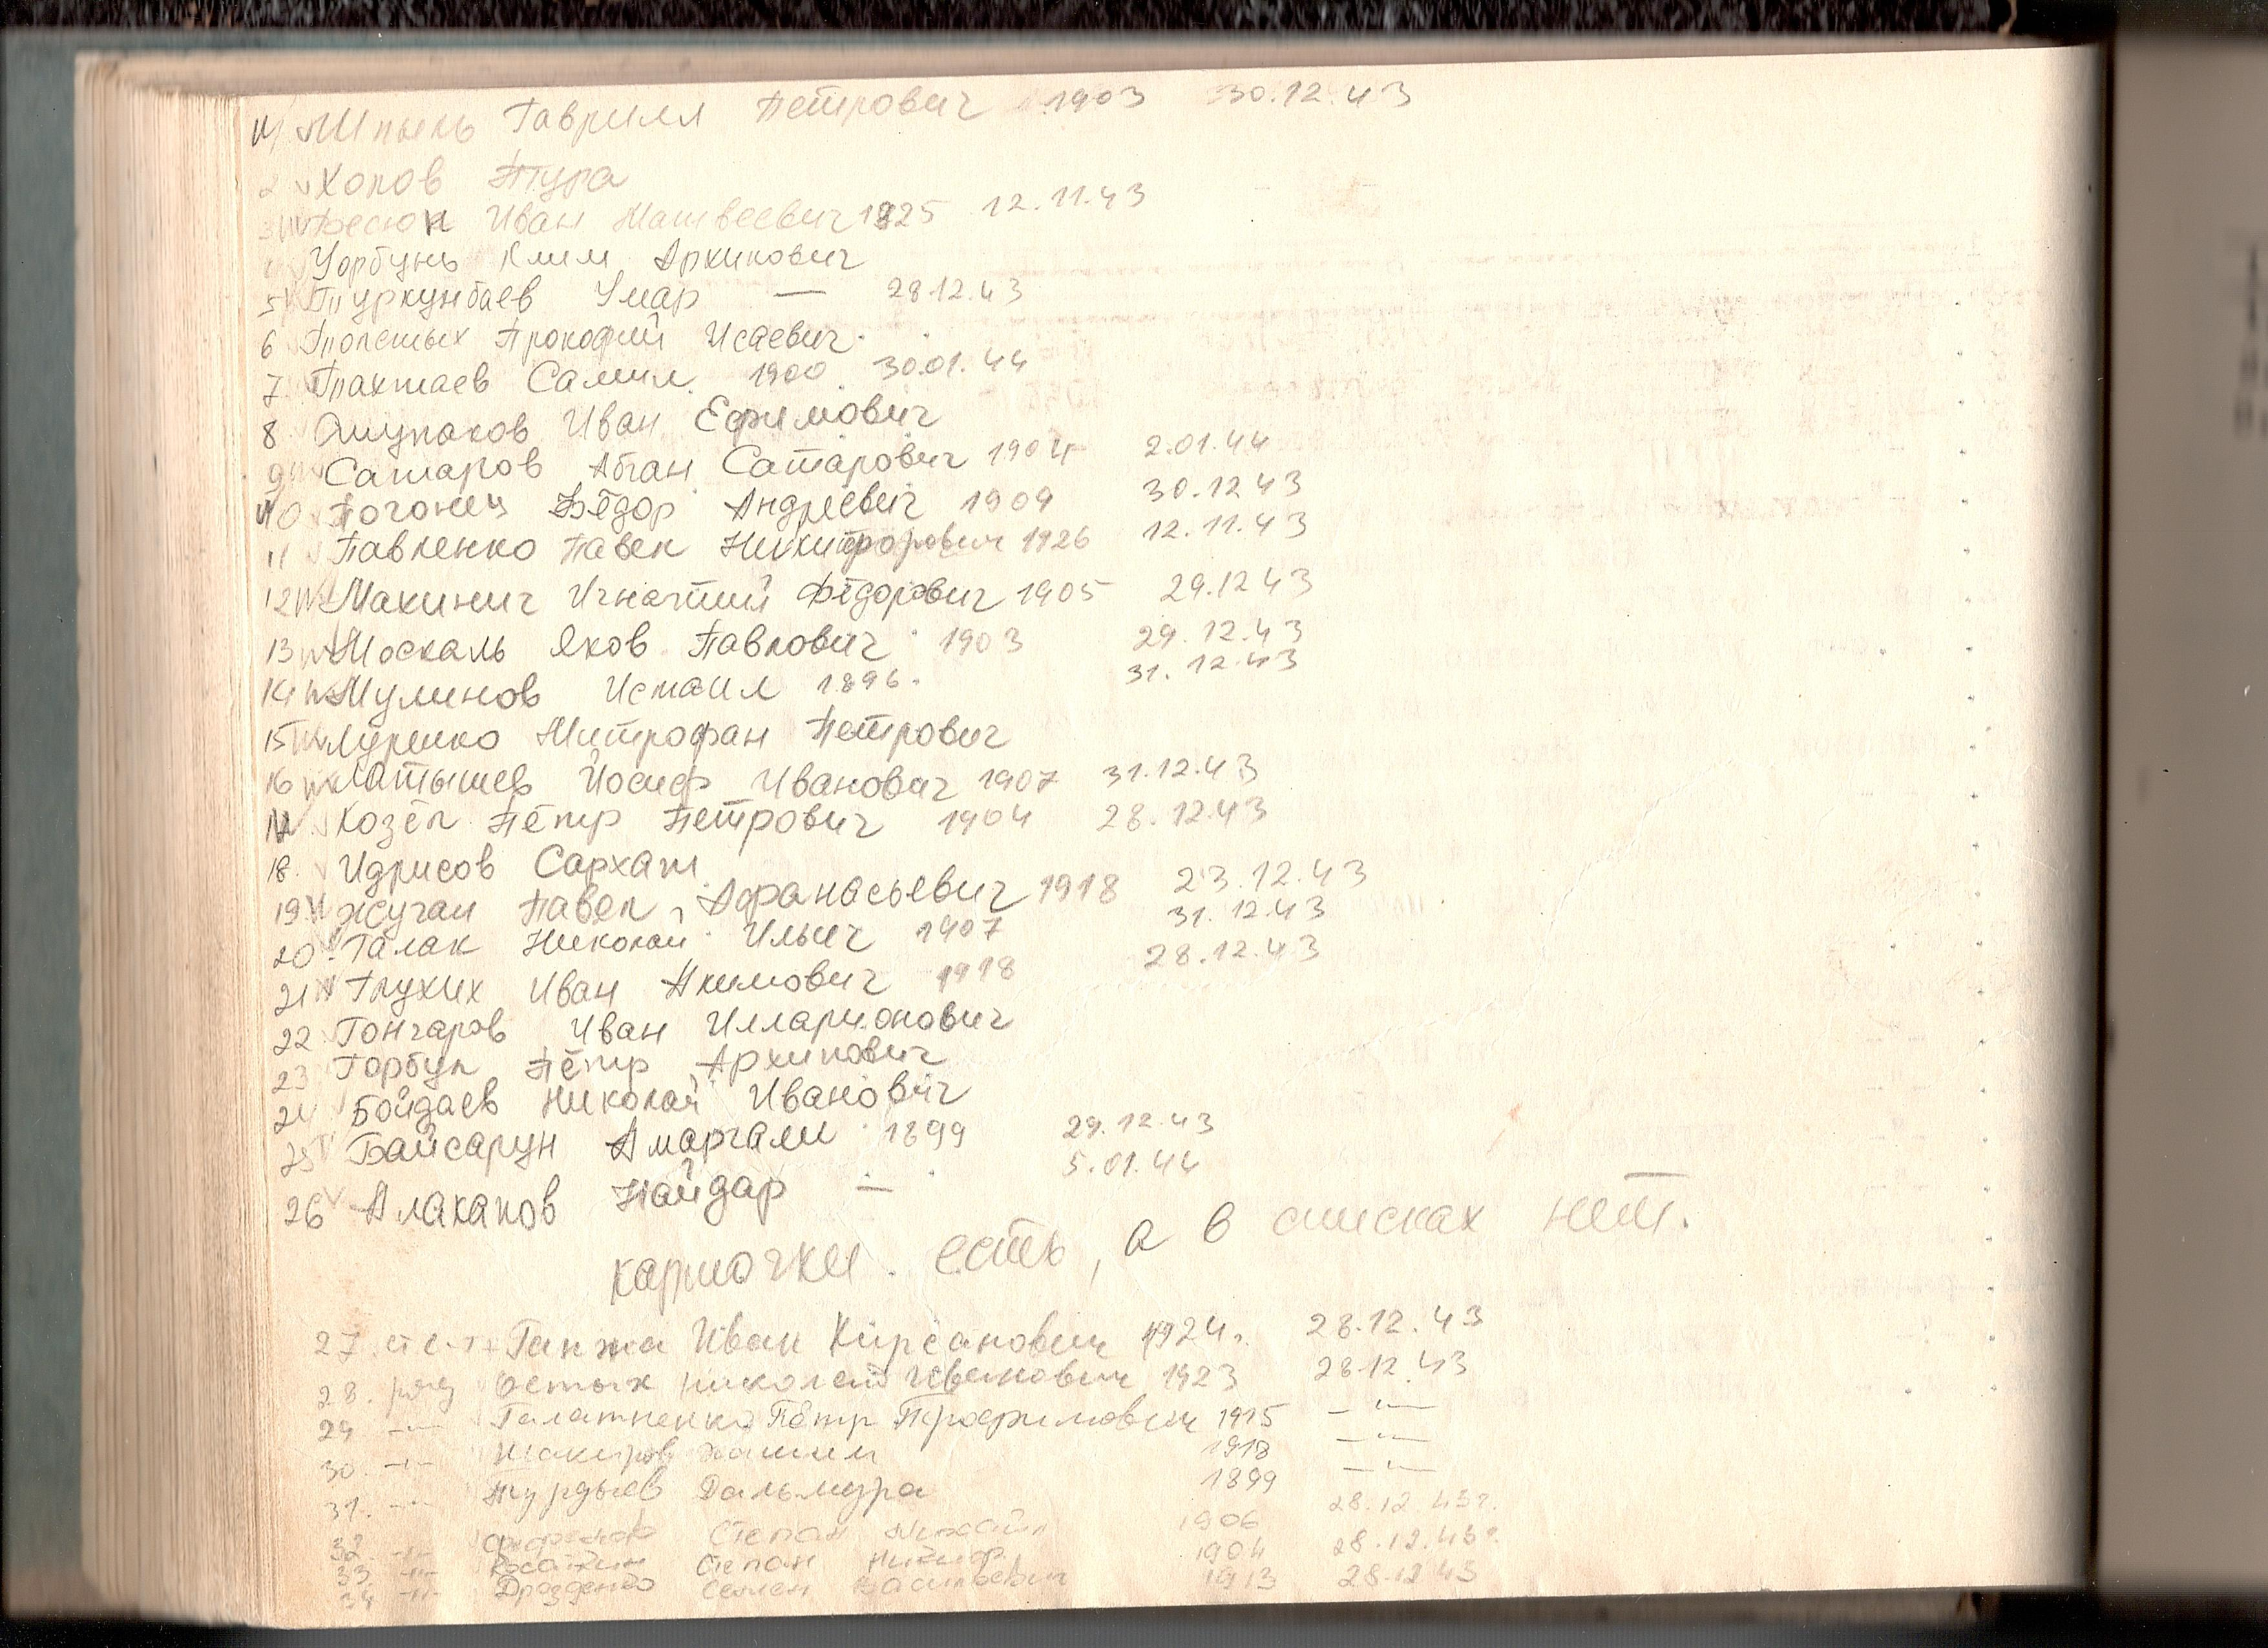 1 Шпыль Гаврилл Петрович 1903 30.12.43
2 Холов Тура
3 Фесюк Иван Матвеевич 1925 12.11.43
4 Уорбунь Клим Архипович
5 Туркунбаев Умар — 28.12.43
6 Прокофий Исаевич
7 Пахтаев Салил 1900 30.01.44
8 Ошупаков Иван Ефимович
9 Сатаров Абган Сатарович 1904 2.01.44
10 Погонец Фёдор Андреевич 1909 30.12 43
11 Павленко Павел Никифорович 1926 12.11.43
12 Макинич Игнатий Фёдорович 1905 29.12 43
13 Москаль Яков Павлович 1903 29.12.43
14 Мулинов Исмаил 1896. 31.12.43
15 Луценко Митрофан Петрович
16 Латышев Йосиф Иванович 1907 31.12.43
17 Козёл Пётр Петрович 1904 28.12.43
18. Идрисов Сархат
19 Жучаи Павел Афанасьевич 1918 23.12.43
20 Галак Николай Ильич 1907 31.12.43
21 Глухих Иван Акимович 1918 28.12.43
22 Гончаров Иван Илларионович
23 Горбул Пётр Архипович
24 Бойдаев Николай Иванович
25 Байсарун Амаргали 1899 29.12.43
26 Алакапов Найдар — 5.01.44
карточки есть, а в списках нет.
27. Ганжа Иван Кирсанович 1924г. 28.12.43
28. ряд Николай Иванович 1923 28.12.43
29 —"— Галатненко Пётр Трофимович 1915 —"—
30. —"— Шакиров Хашим 1918 —"—
31. —"— Турдыев Дальмура 1899 —"—
32 —"— Степан Михайл 1906 28.12.43г.
33 —"— Косаткин Степан Никифор. 1904 28.12.43г.
34 —"— Дрозденко Семен Васильевич 1913 28.12 43